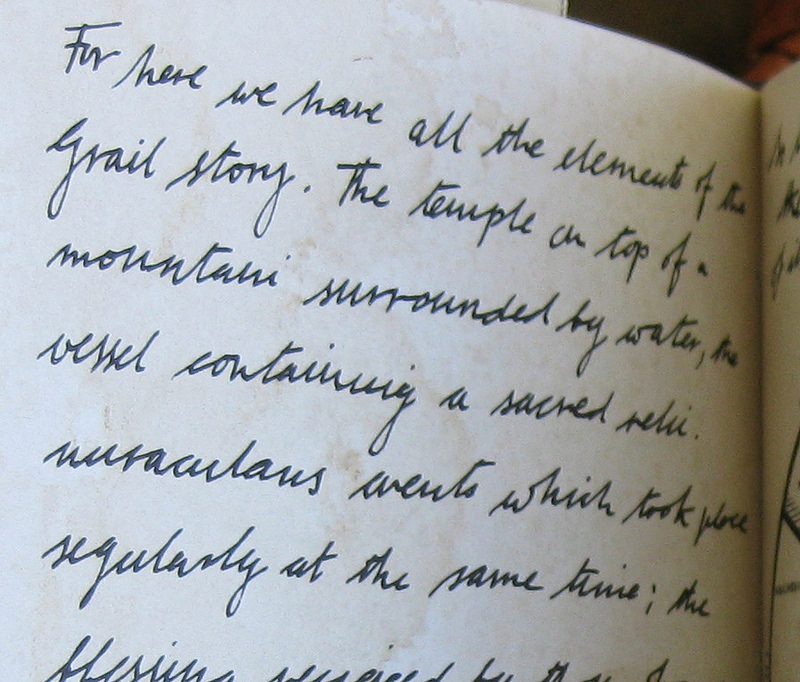 For here we have all the elements of the
Grail story. The temple on top of a
mountain surrounded by water, the
vessel containing a sacred relic.
miraculous events which took place
regularly at the same time; the
blessing received by